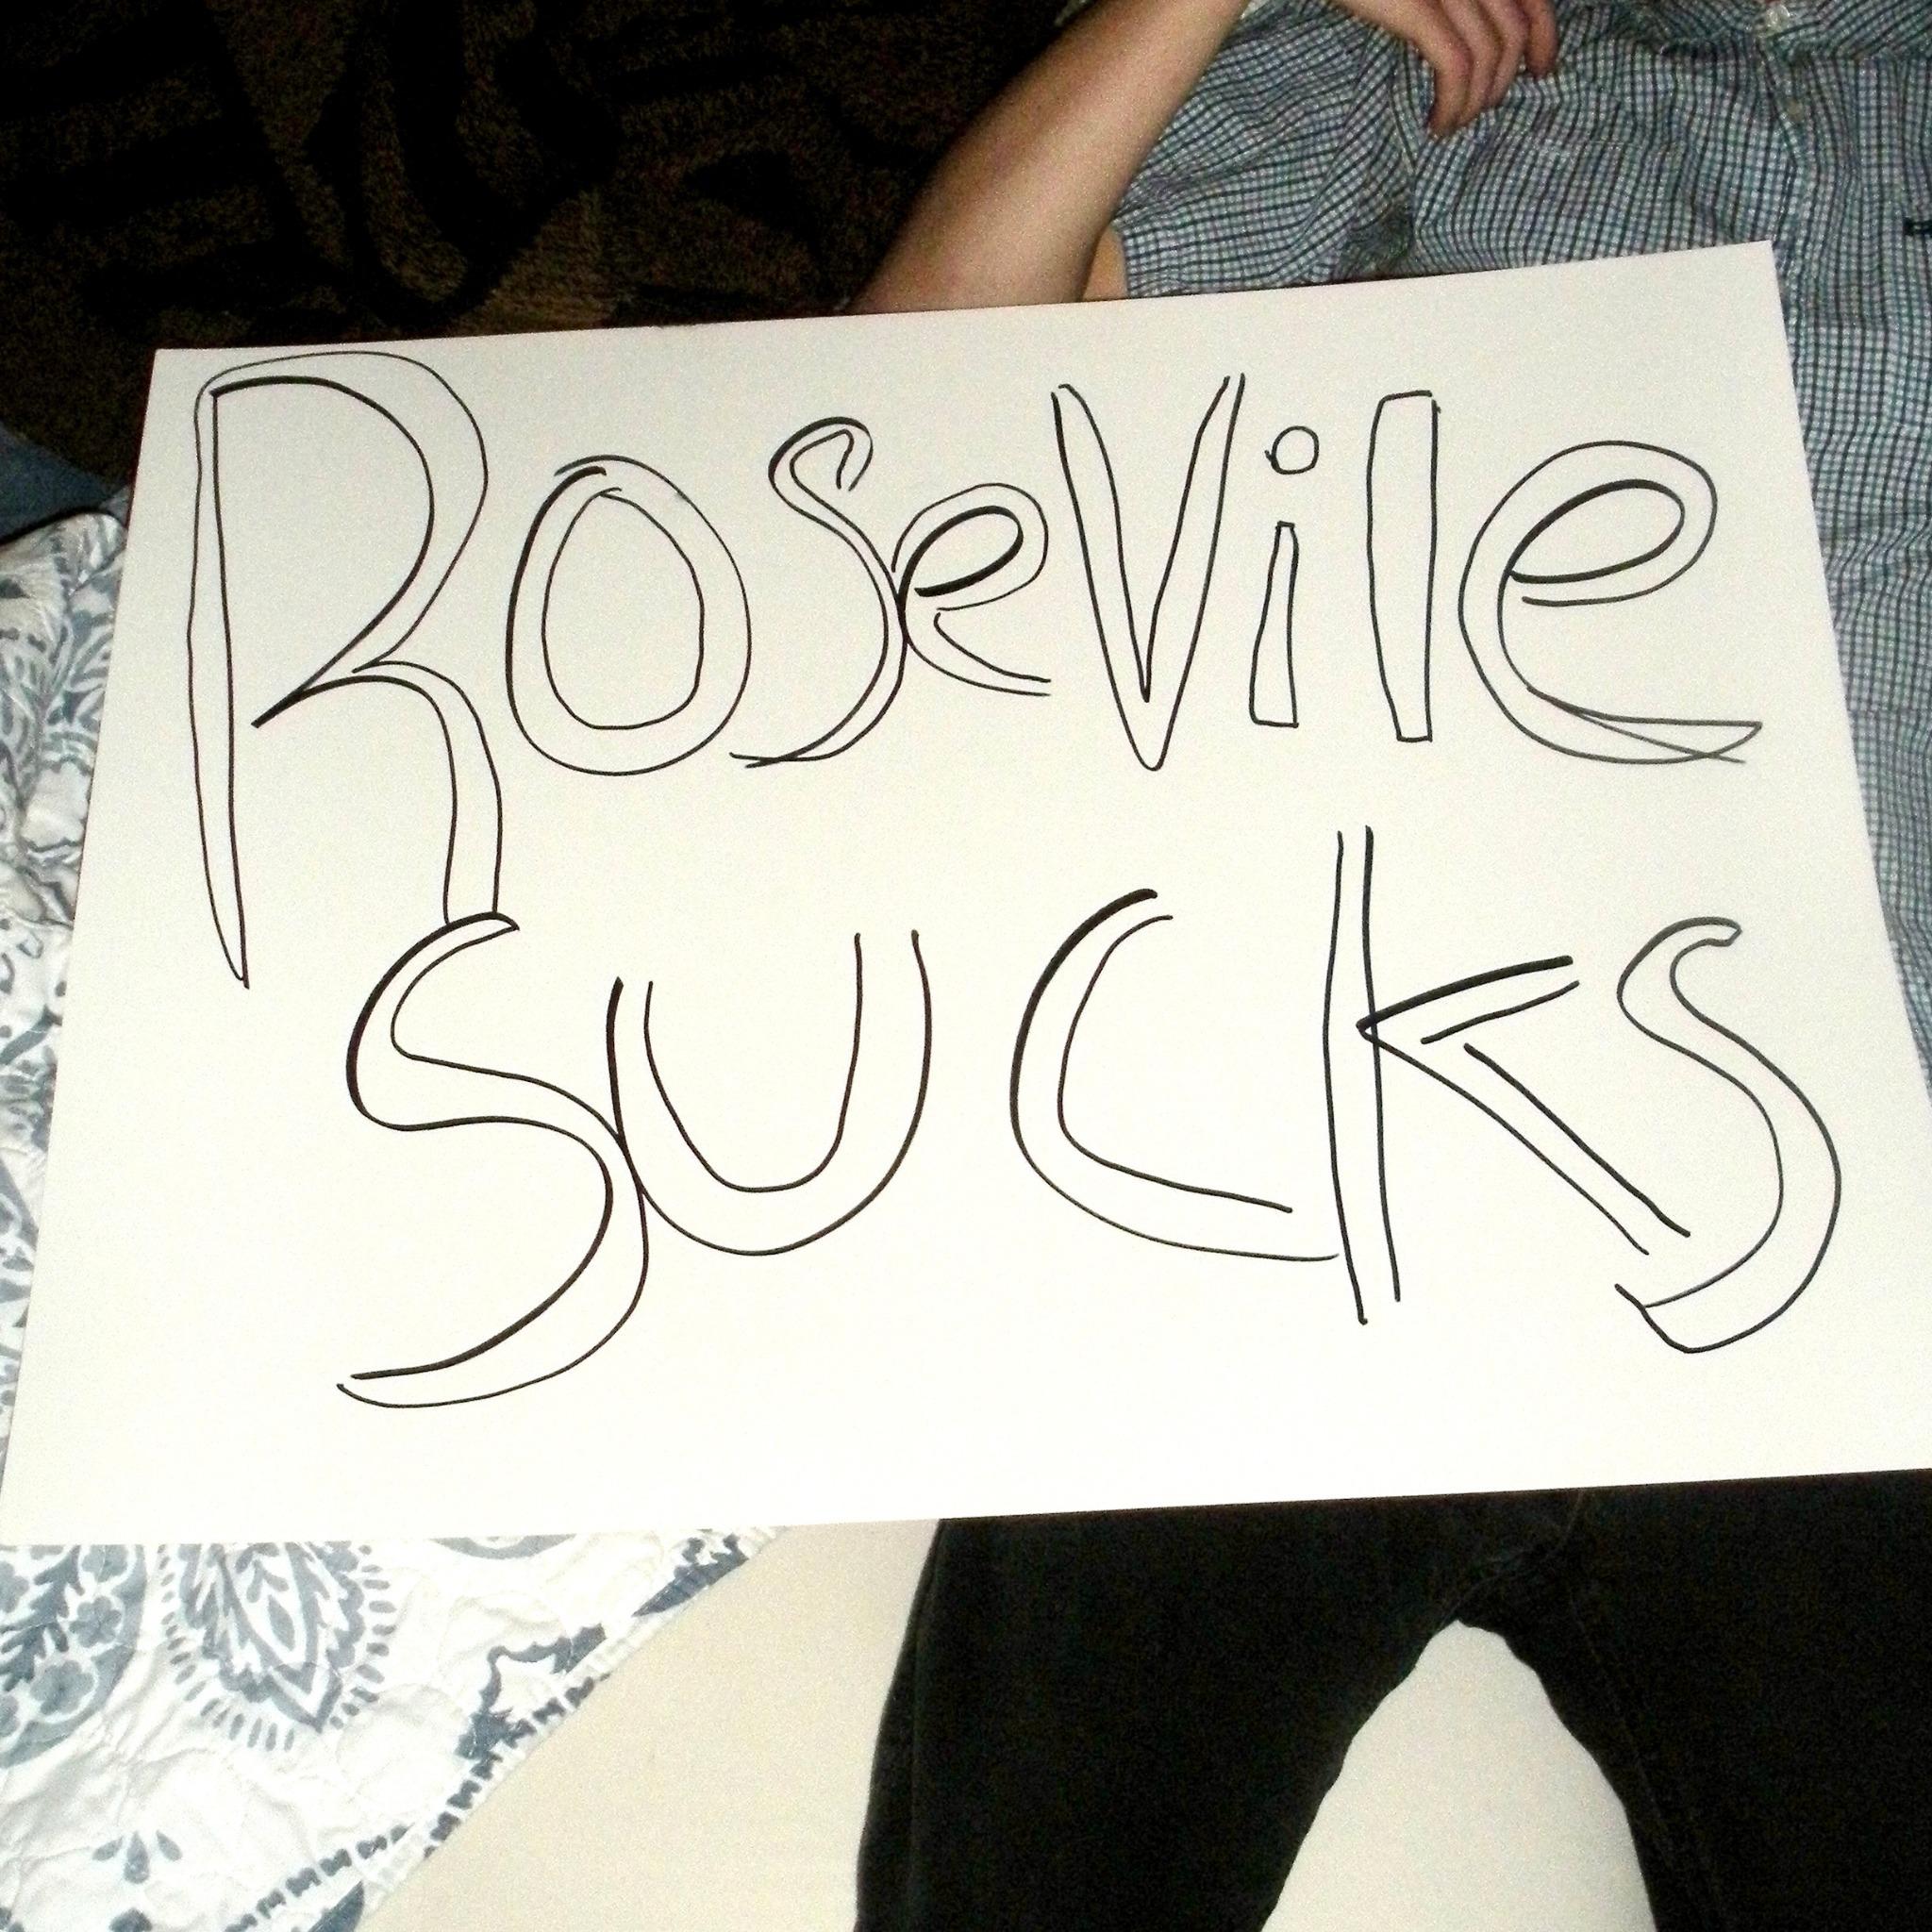 RoseVile
SUCKS